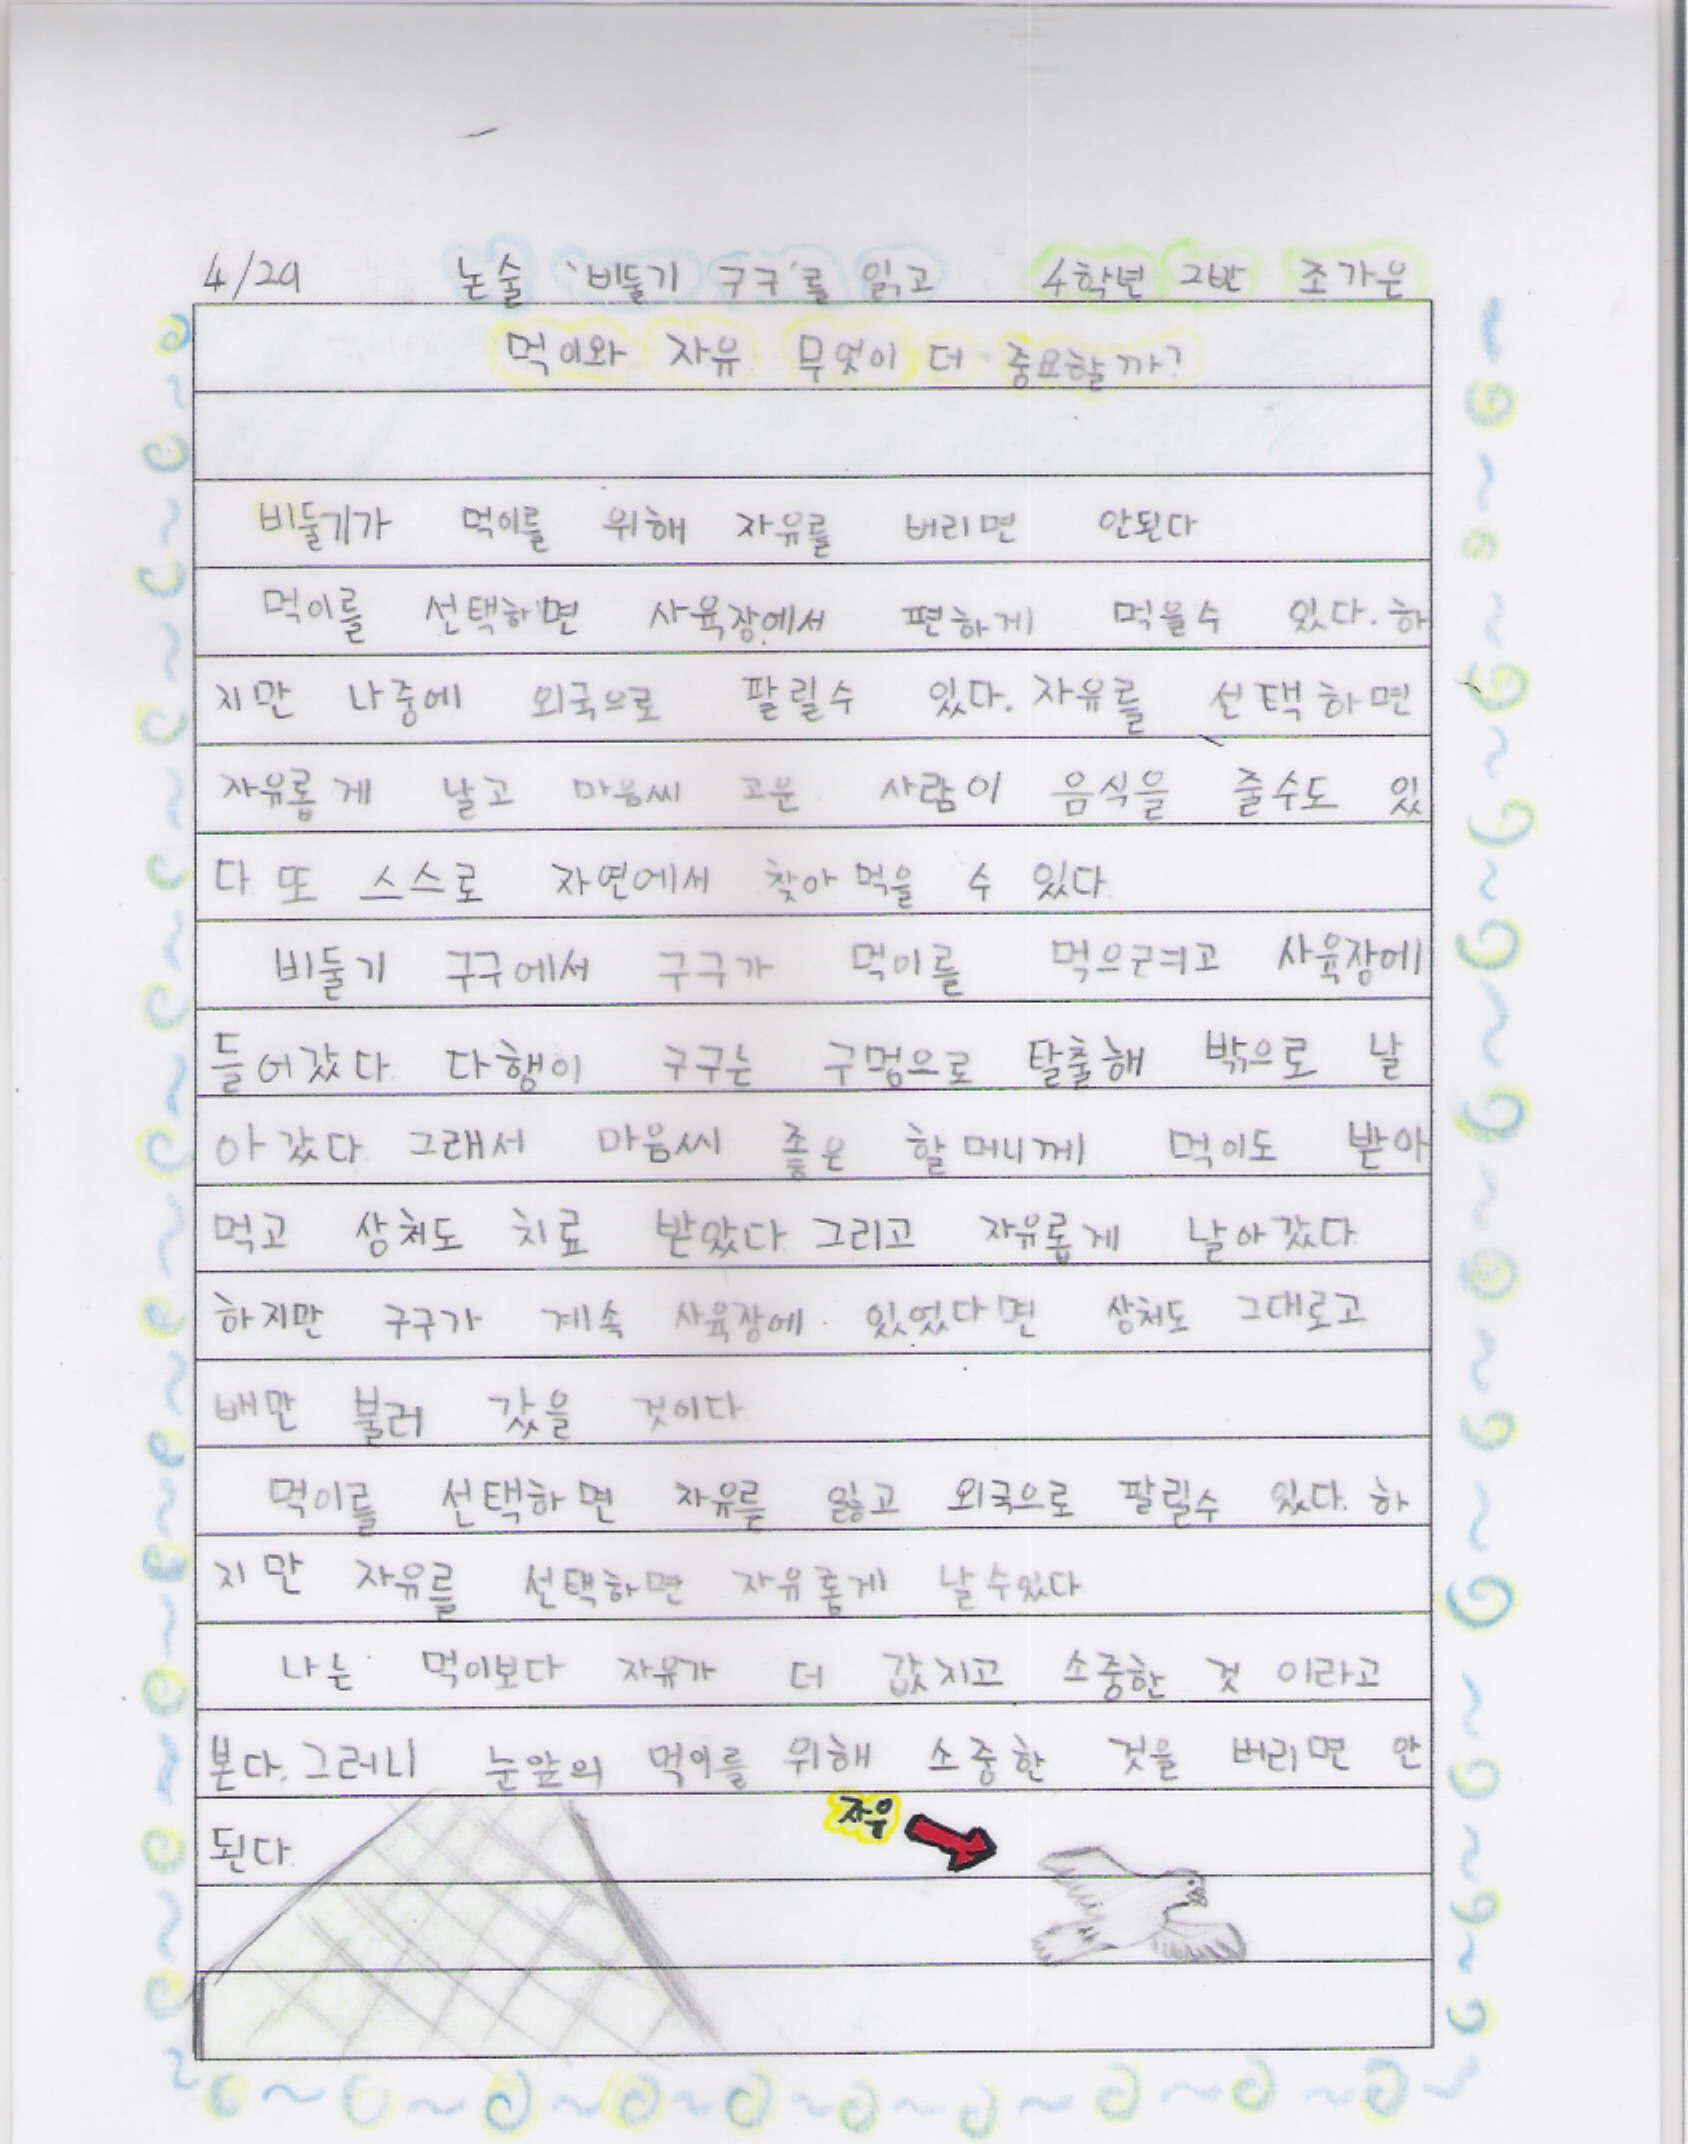 4/29 논술 '비둘기 구구'를 읽고 4학년 2반 조가은
먹이와 자유 무엇이 더 중요할까?
비둘기가 먹이를 위해 자유를 버리면 안된다
먹이를 선택하면 사육장에서 편하게 먹을수 있다. 하
지만 나중에 외국으로 팔릴수 있다. 자유를 선택하면
자유롭게 날고 마음씨 고운 사람이 음식을 줄수도 있
다 또 스스로 자연에서 찾아 먹을 수 있다
비둘기 구구에서 구구가 먹이를 먹으려고 사육장에
들어갔다. 다행이 구구는 구멍으로 탈출해 밖으로 날
아갔다. 그래서 마음씨 좋은 할머니께 먹이도 받아
먹고 상처도 치료 받았다. 그리고 자유롭게 날아갔다
하지만 구구가 계속 사육장에 있었다면 상처도 그대로고
배만 불러 갔을 것이다
먹이를 선택하면 자유를 잃고 외국으로 팔릴수 있다. 하
지만 자유를 선택하면 자유롭게 날수있다
나는 먹이보다 자유가 더 값지고 소중한 것 이라고
본다. 그러니 눈앞의 먹이를 위해 소중한 것을 버리면 안
된다.
자유